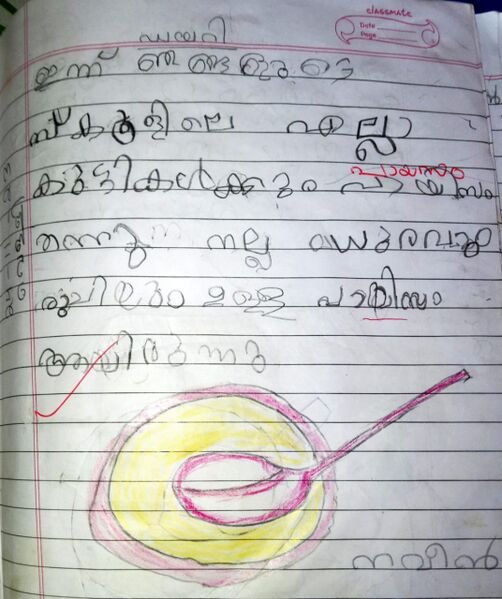 classmate
Date
Page
ഡയറി
ഇന്ന് ഞങ്ങളുടെ
സ്കൂളിലെ എല്ലാ
പായസം
കുട്ടികൾക്കും പായസം
തന്നു നല്ല മധുരവും
രുചിയും ഉള്ള പായിസം
ആയിരുന്നു
നവീൻ